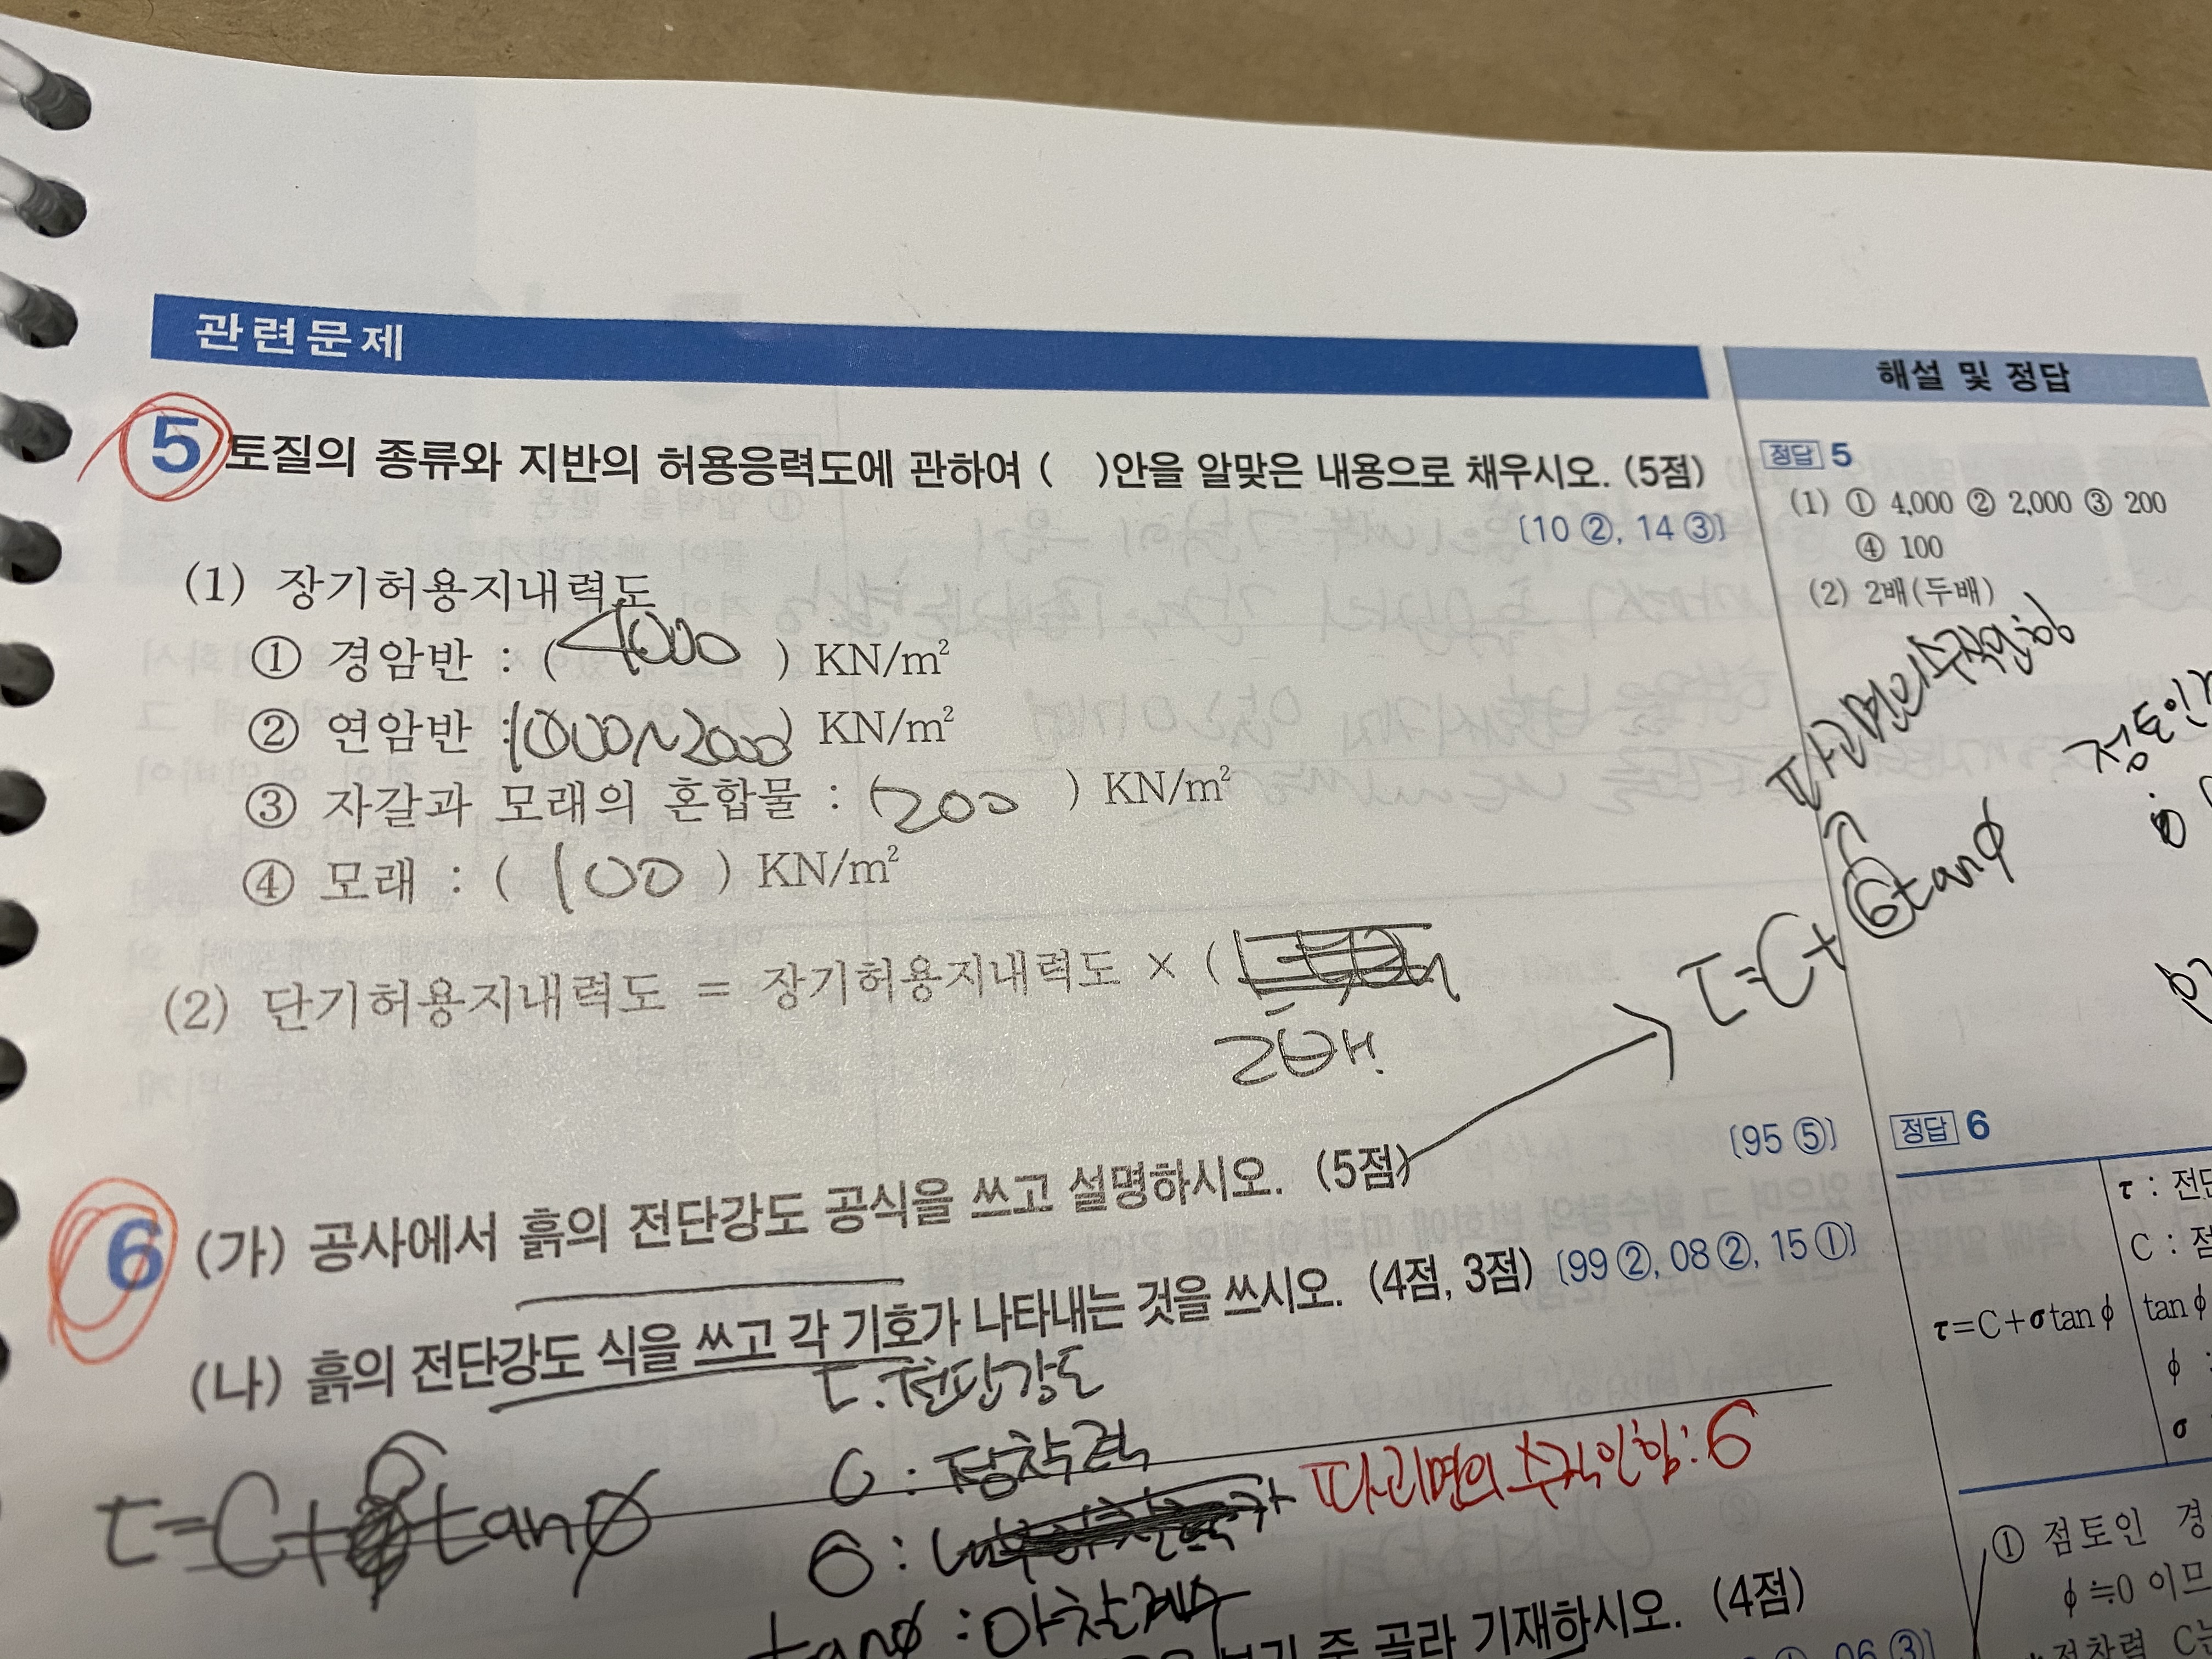 관련문제
5 토질의 종류와 지반의 허용응력도에 관하여 ( )안을 알맞은 내용으로 채우시오. (5점)
[10 ②, 14 ③]
(1) 장기허용지내력도
① 경암반 : ( 4000 ) KN/m²
② 연암반 : (1000~2000) KN/m²
③ 자갈과 모래의 혼합물 : (200 ) KN/m²
④ 모래 : ( 100 ) KN/m²
(2) 단기허용지내력도 = 장기허용지내력도 × (
2배!
[95 ⑤]
6 (가) 공사에서 흙의 전단강도 공식을 쓰고 설명하시오. (5점)
(나) 흙의 전단강도 식을 쓰고 각 기호가 나타내는 것을 쓰시오. (4점, 3점) [99 ②, 08 ②, 15 ①]
τ : 전단강도
C : 점착력
σ :
파괴면의 수직인힘 : σ
τ=C+ tanϕ
tanϕ : 마찰계수
보기 중 골라 기재하시오. (4점)
06 ③]
해설 및 정답
정답 5
(1) ① 4,000 ② 2,000 ③ 200
④ 100
(2) 2배(두배)
파괴면의 수직인힘
점토인
τ=C+σtanϕ
정답 6
τ=C+σtanϕ
τ : 전단
C : 점
tanϕ
ϕ :
σ
① 점토인 경
ϕ≒0 이므
점착력 C는